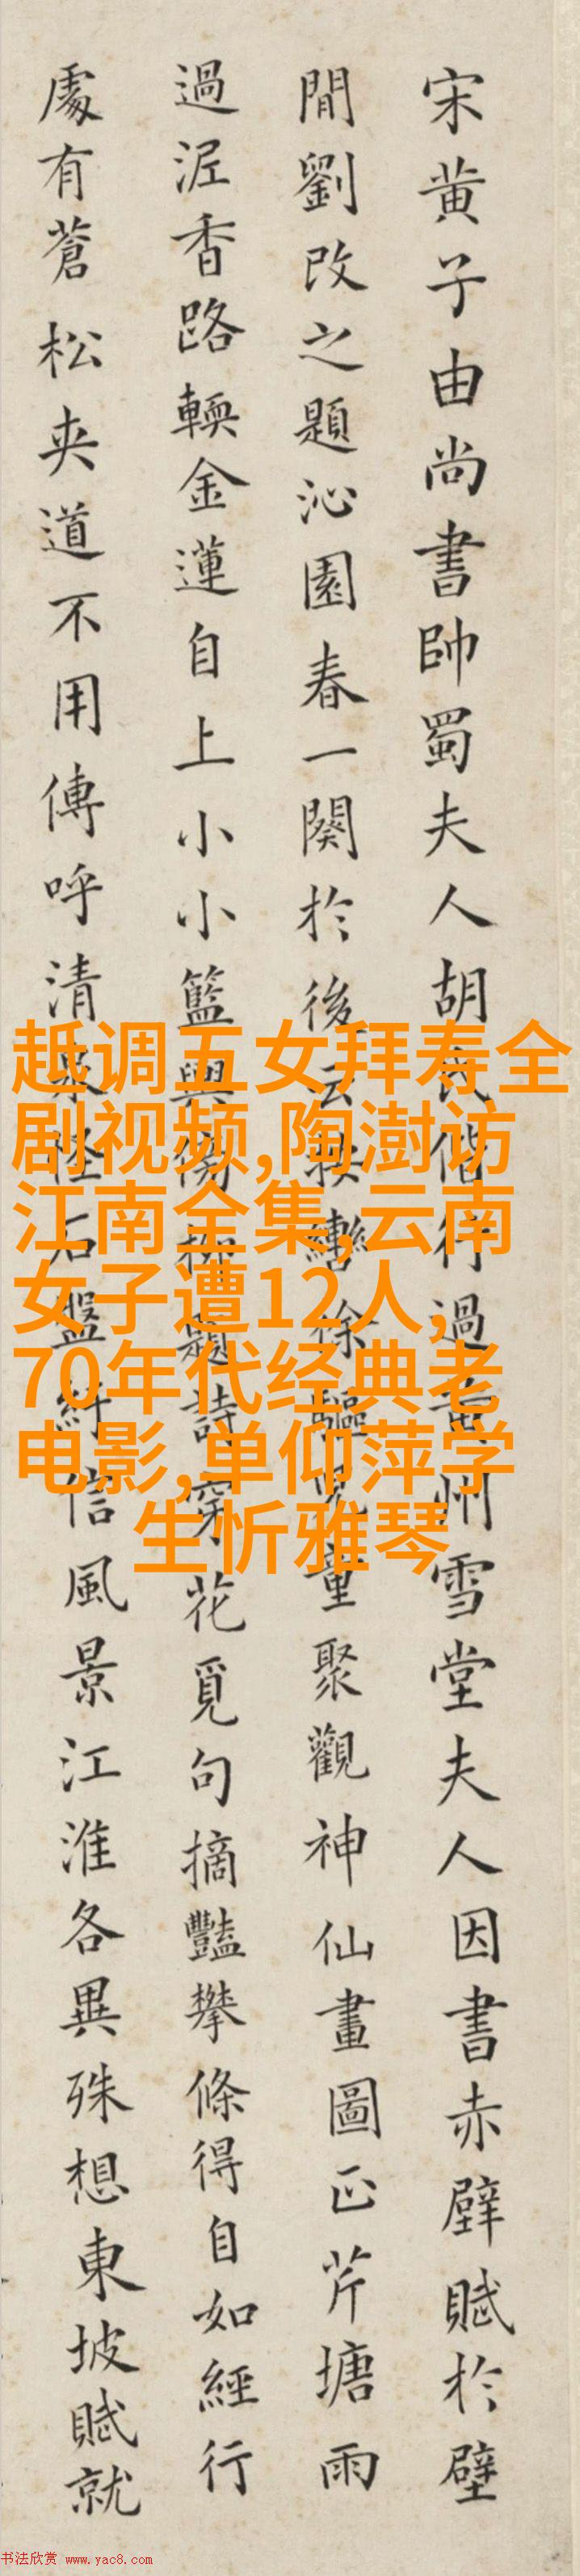 宋黄子由尚書帥蜀夫人胡氏偕行過黄州雪堂夫人因書赤壁賦於壁
間劉改之題沁園春一闋於後云按轡徐驅兒童聚觀神仙畫圖正芹塘雨
過泥香路輭金蓮自上小小籃輿傍柳題詩穿花覓句摘豔攀條得自如經行
處有蒼松夾道不用傳呼清泉怪石盤紆信風景江淮各異殊想東坡賦就
越调五女拜寿全
剧视频,陶澍访
江南全集,云南
女子遭12人,
70年代经典老
电影,单仰萍学
生忻雅琴
书法欣赏 www.yac8.com